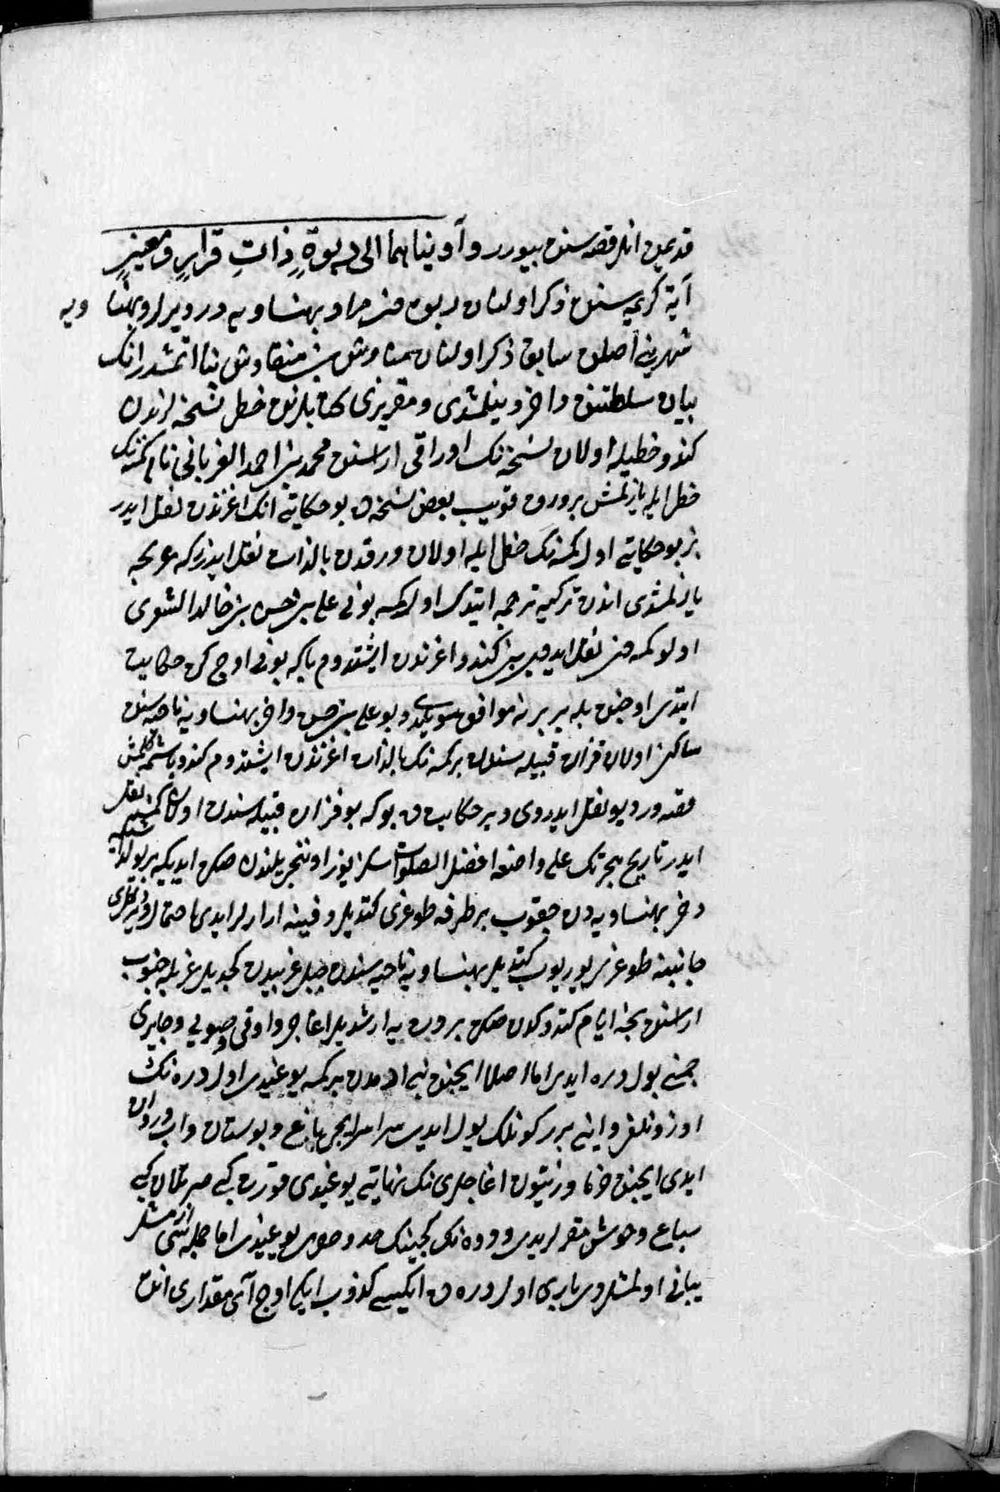 قدیمی انلر قصه‌سنده بیورر وآویناهما الی ربوة ذات قرار ومعین
آیة کریمه‌سنده ذکر اولنان ربوه بهنساویه در دیرلر و بهنساویه
شهرینی اصلنده سابق ذکر اولنان مناوش بن منقاوش بنا اتمشدر انک
بیان سلطنتنده داخی ینلمشدی ومقریزی کتابلرنده خطل نسخه‌لرندن
کندو خطیله اولان نسخه‌نک اوراقی اراسنده محمد بن احمد الفریانی نام کمسه‌نک
خط ایله یازلمش بر ورق قویب بعض نسخه‌ده بو حکایتی انک اغزندن نقل ایدر
بز بو حکایتی اول کمسه‌نک خطی ایله اولان ورقدن بالذات نقل ایدرزکه عربجه
یازلمشدی اندن ترکیه ترجمه ایتدک اول کمسه بونی علی بن حسن بن خالد الشعری
اولو کمسه‌دن نقل ایدر بن کندو اغزندن ایشتدم باکه بونی اوچ کره حکایت
ایتدی اوچنده بله بر برینه موافق سویلدی و بو علی بن حسن داخی بهنساویه ناحیه‌سنده
ساکن اولان فزان قبیله‌سندن بر کمسه‌نک بالذات اغزندن ایشتدم کندو باشنه کلمش
قصه‌در دیو نقل ایدردی و بر حکایت ده بوکه بو فزان قبیله‌سندن اولان کمسه نقل
ایدر تاریخ هجرتک علی واضعها افضل الصلوات سکز یوز اوننجی یلندن صکره ایدیکه بر یولداشیله
دخی بهنساویه‌دن چقوب بر طرفه طوغری کتدیلر دفینه ارارلر ایدی
جانبنه طوغری یوریوب کتدیلر بهنساویه ناحیه‌سندن جبل غربیدن کچدیلر غربله جنوب
اراسنده نیجه ایام کتدکدن صکره بر دره‌یه ارشدیلر اغاجی و اوتی وصویی و چایری
چمنی بول دره ایدی اما اصلا ایچنده بنی ادمدن بر کمسه یوغیدی اول دره‌نک
اوزونلغی و اینی بر کونلک یول ایدی سراسر ایچی باغ و بوستان و اب روان
ایدی ایچنده خرما و زیتون اغاجلری‌نک نهایتی یوغیدی
سباع وحوش مقرلریدی و دوه‌نک کچینک حد وحصری یوغیدی اما جمله‌سی
یبانی اولمشلردی باری اول دره‌ده ایکیسی کزوب ایکی اوچ آی مقداری انده